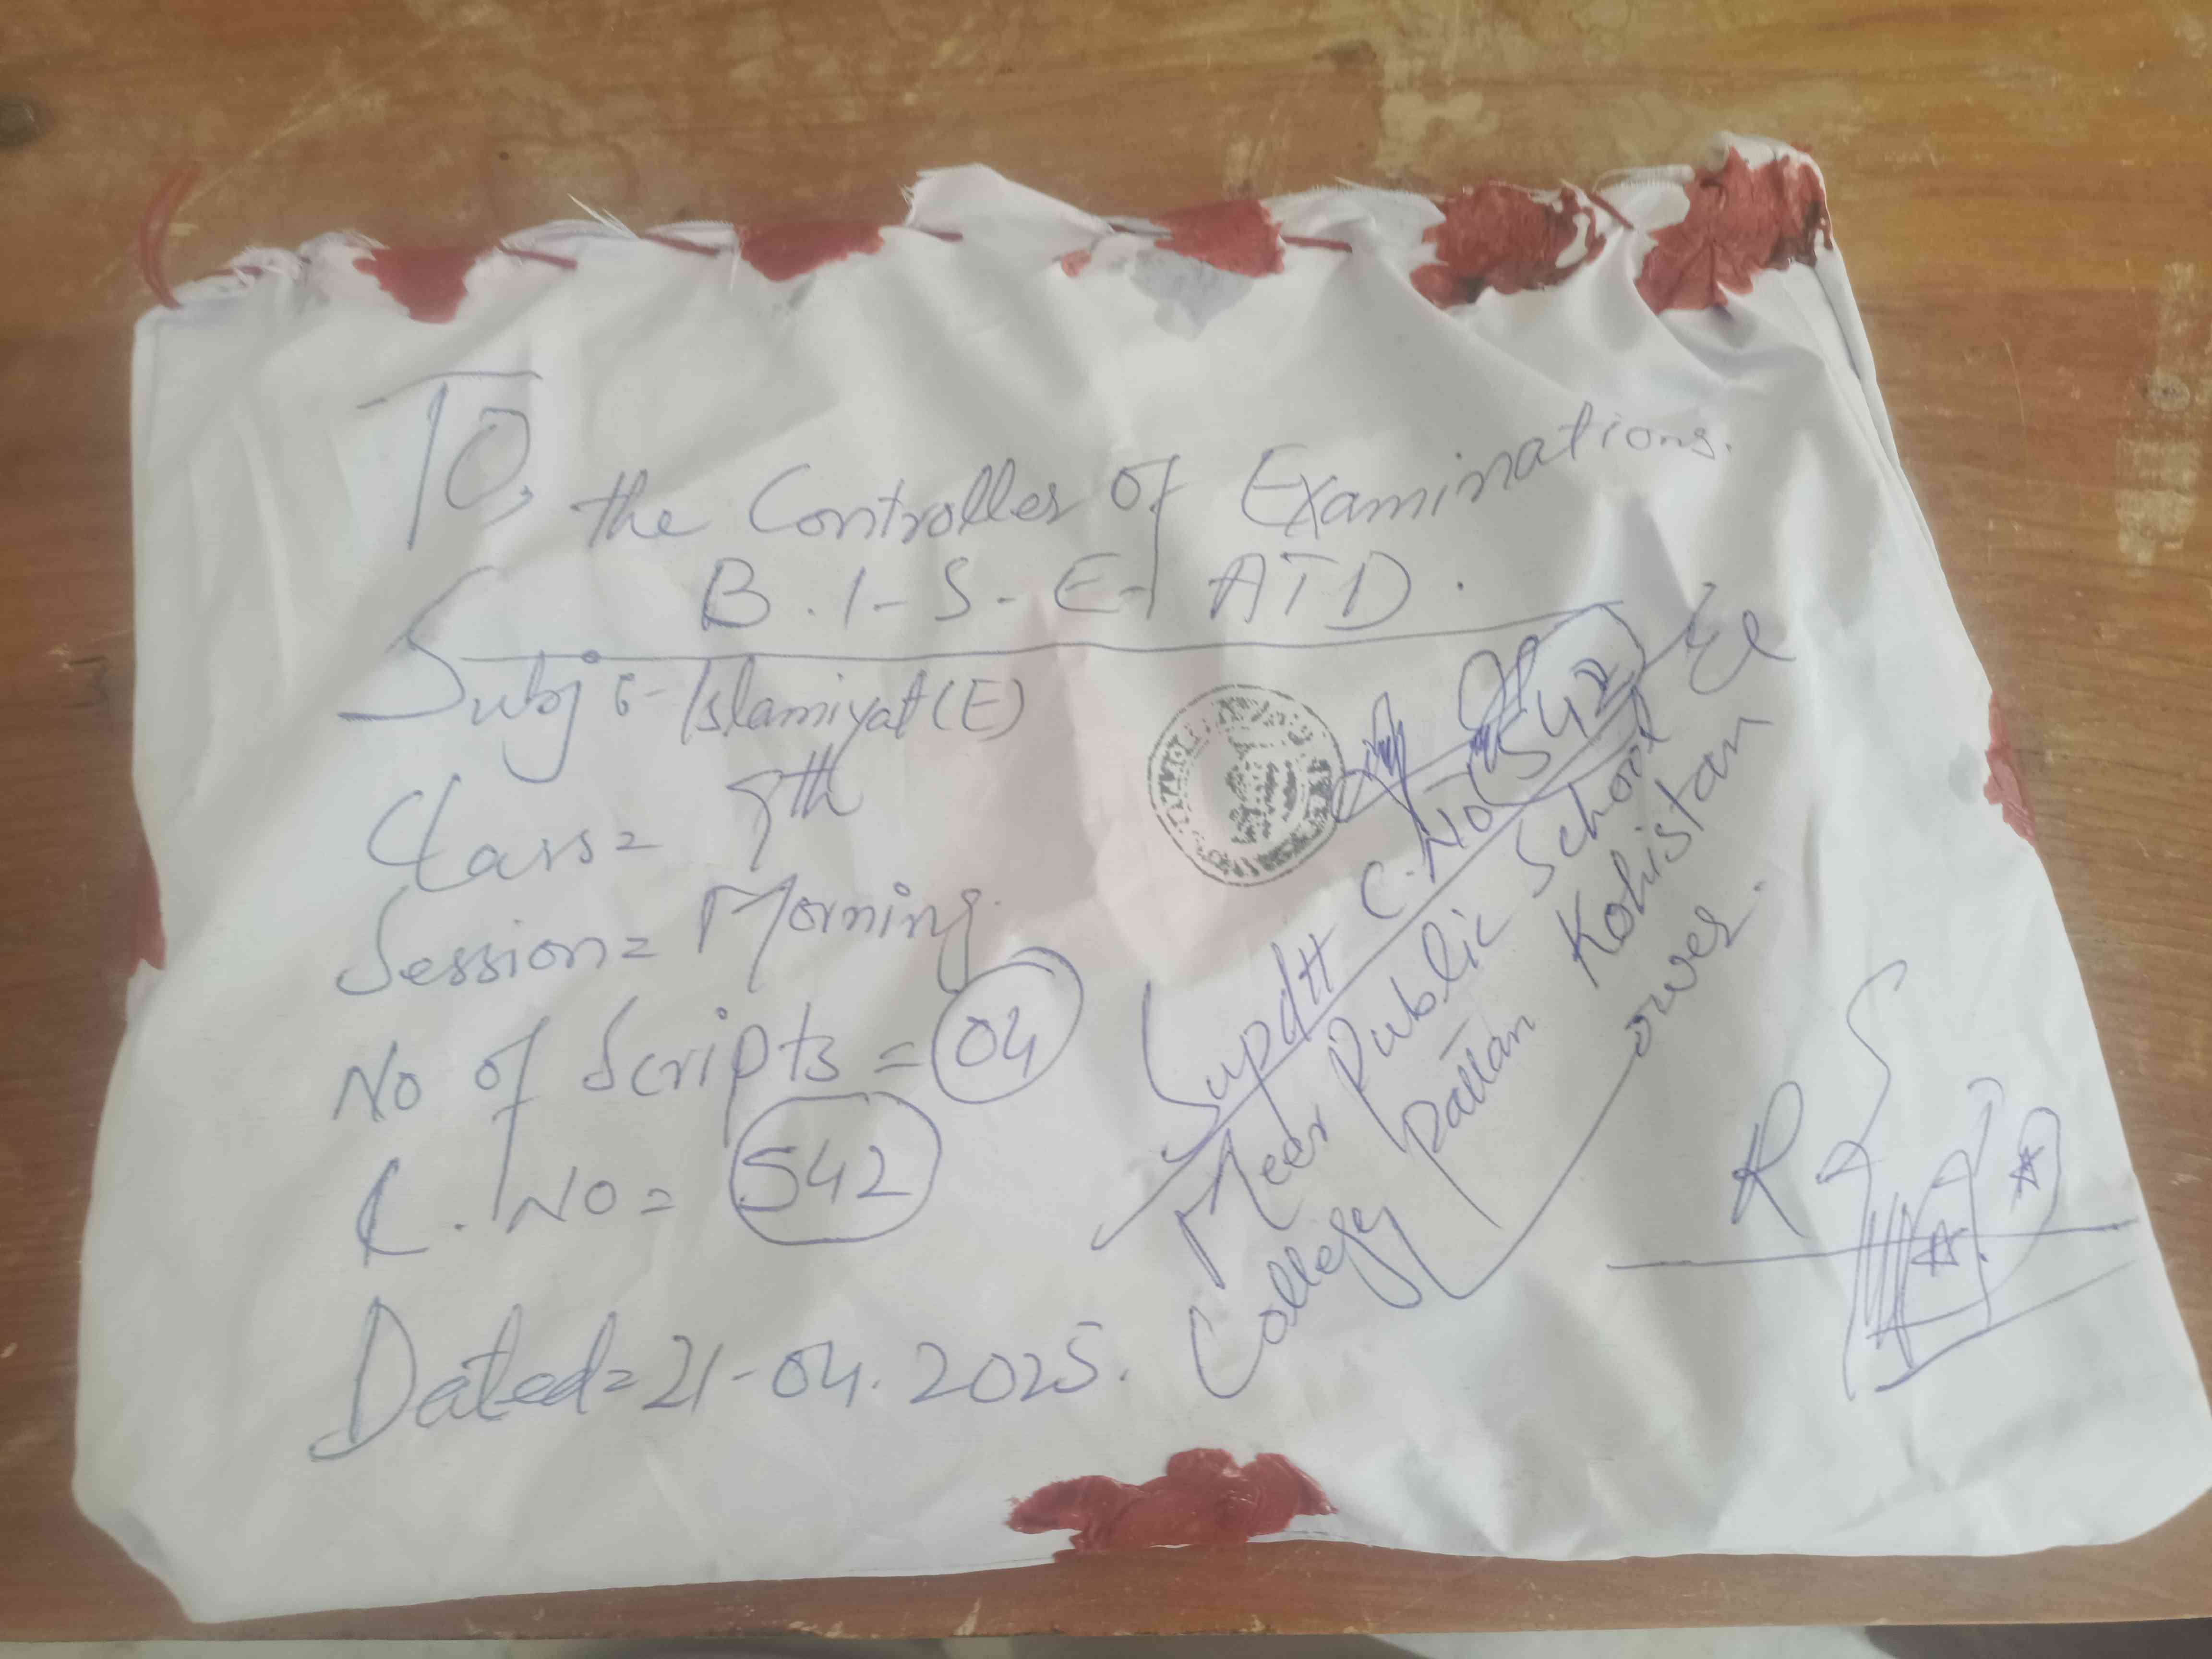 To,
the Controller of Examinations.
B.I-S-E-ATD.
Subj:- Islamiyat(E)
Class= 9th
Session= Morning.
No of Scripts = 04
C.No= 542
Dated= 21-04.2025.
Supdtt C.No 542
Meer Public School &
College Pattan Kohistan
Lower.